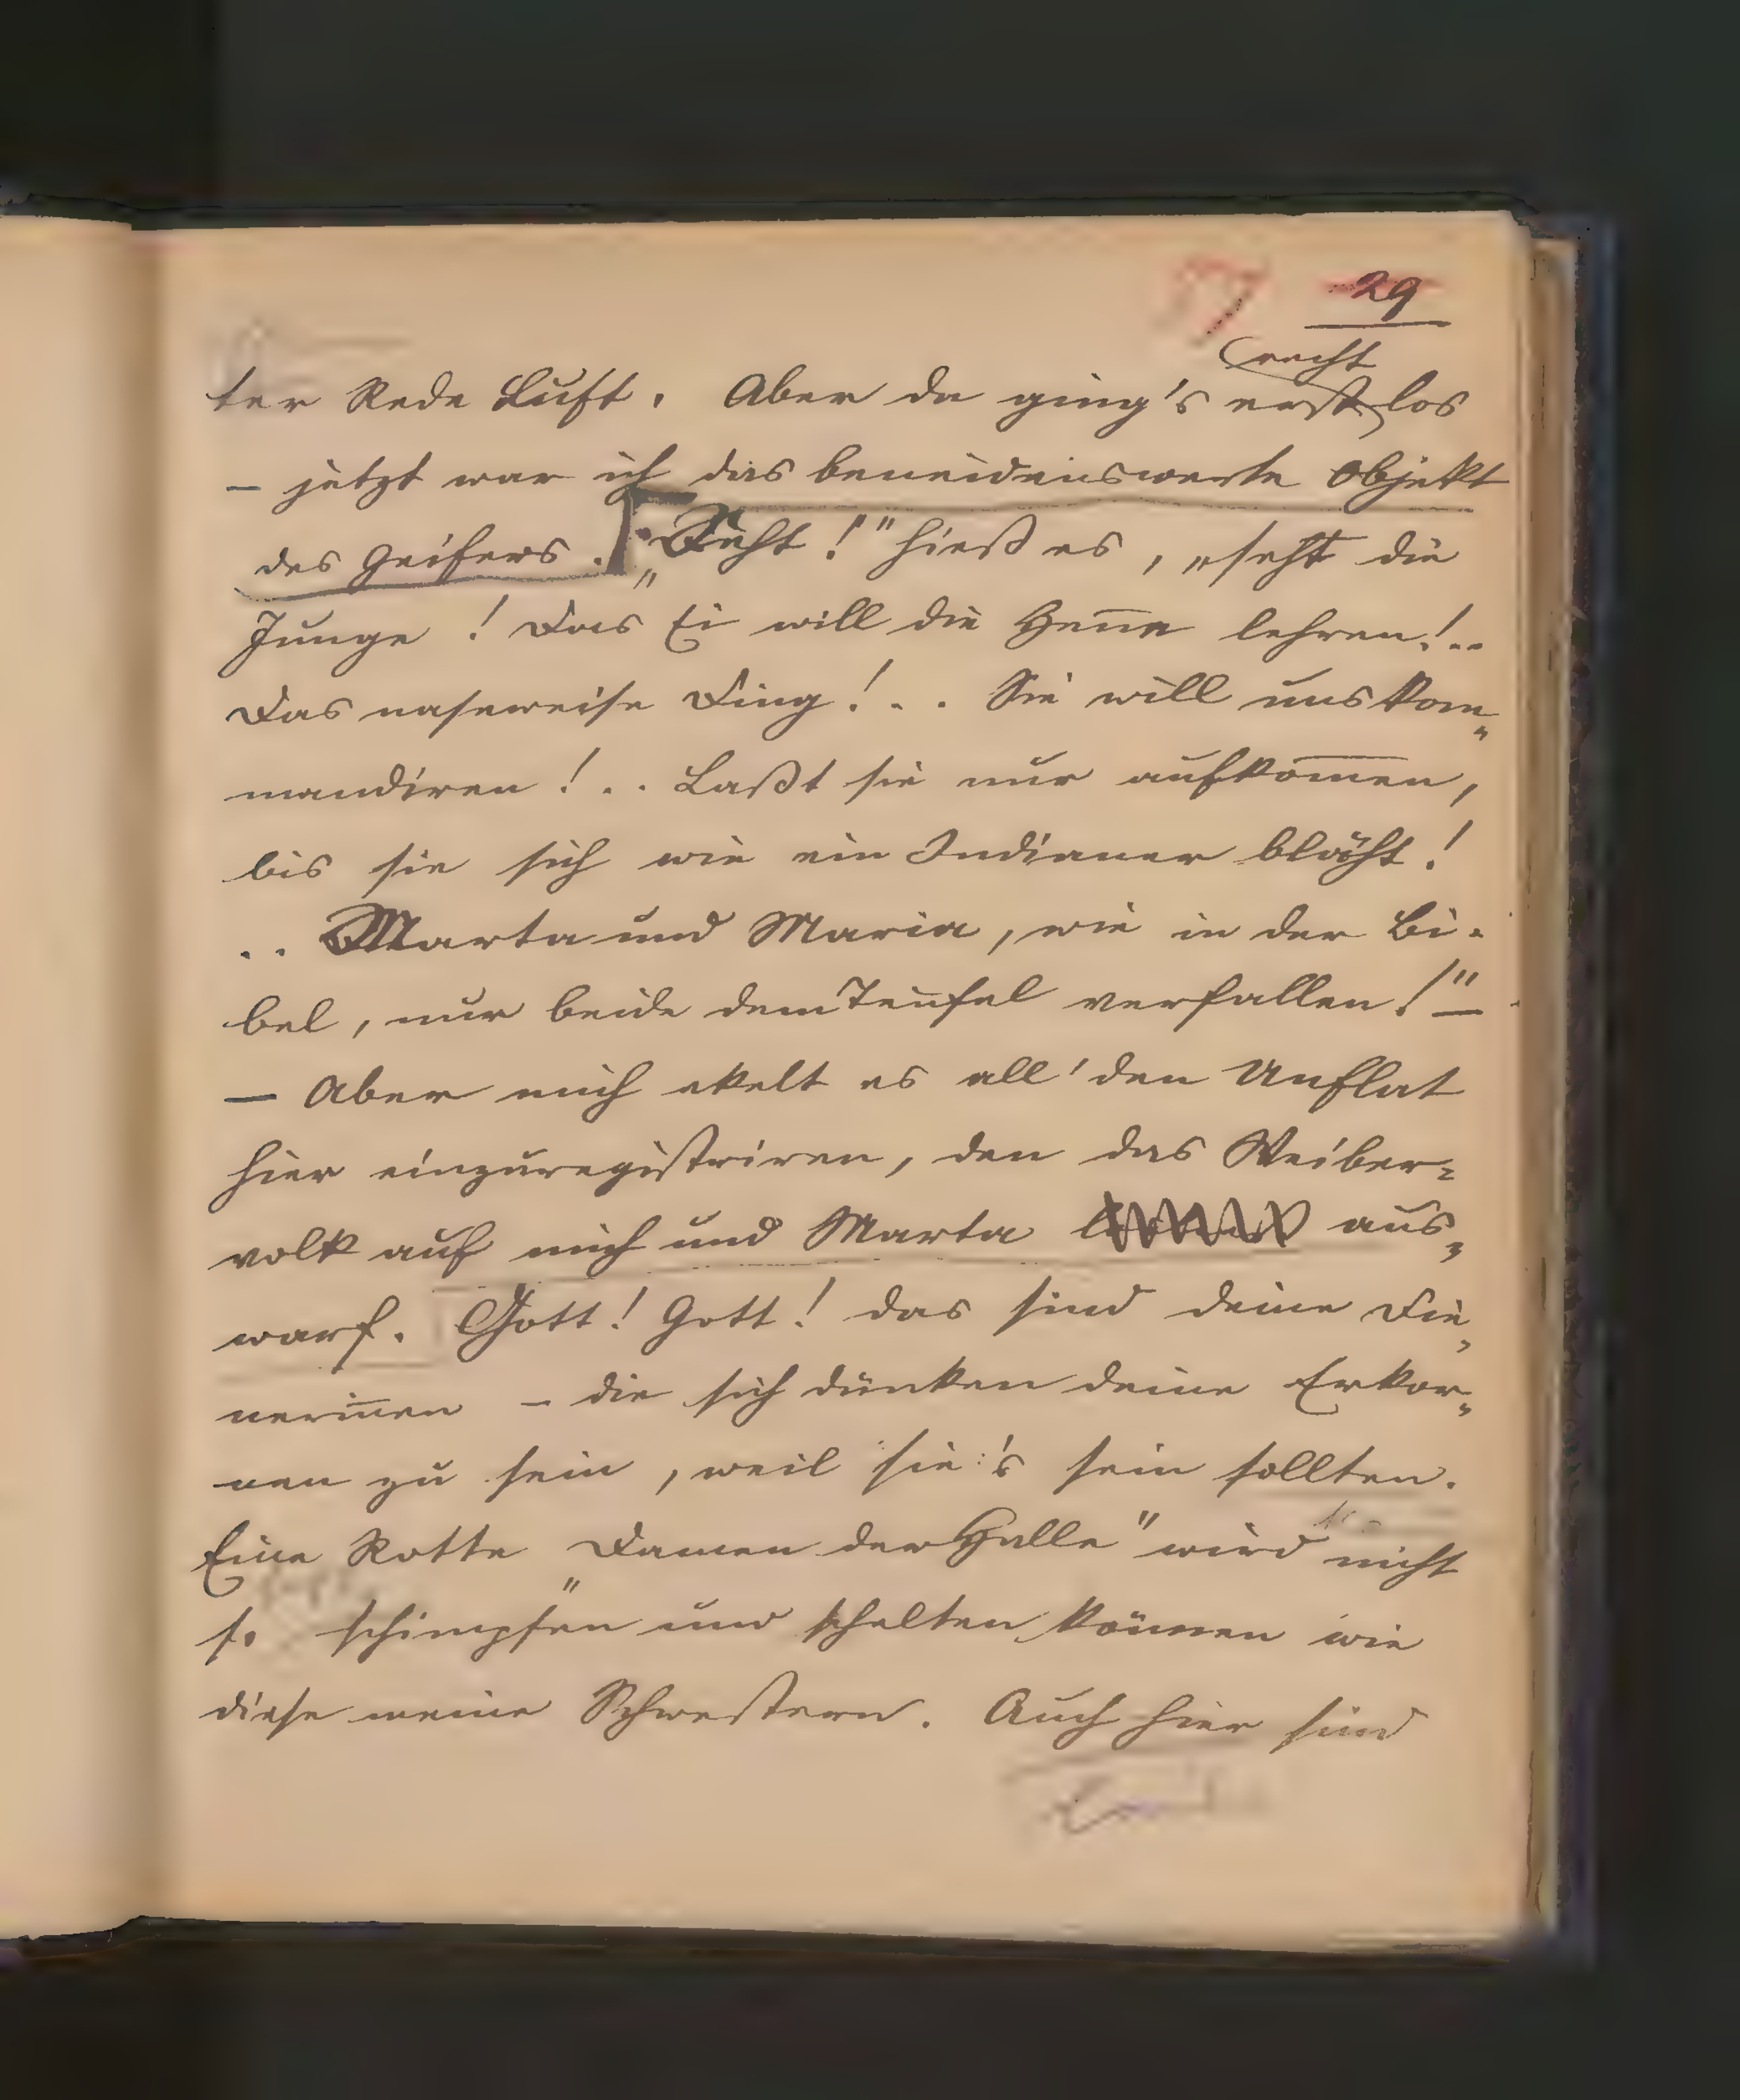 29
recht
ter Rede Luft. Aber da ging's erst los
– jetzt war ich das beneidenswerte Objekt
des Geifers. „Seht!" hieß es, „seht die
Junge! Das Ei will die Heñe lehren!..
Das naseweise Ding!.. Sie will uns kom„
mandiren!.. Laßt sie nur aufkom̄en,
bis sie sich wie ein Indianer bläht!
.. Marta und Maria, wie in der Bi-
bel, nur beide dem Teufel verfallen!" –
– Aber mich ekelt es all' den Unflat
hier einzuregistriren, den das Weiber=
volk auf mich und Marta aus„
warf. Gott! Gott! das sind deine Die„
neriñen – die sich dünken deine Erkor„
nen zu sein, weil sie's sein sollten.
Eine Rotte „Damen der Halle" wird nicht
so schimpfen und schelten können wie
diese meine Schwestern. Auch hier sind